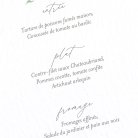 entrée
Tartare de poissons fumés maison,
Concassée de tomate au basilic.
plat
Contre-filet sauce Chateaubriand,
Pommes rosette, tomate confite
Artichaut crispy
fromage
Fromages affinés,
Salade du jardinier et pain aux noix